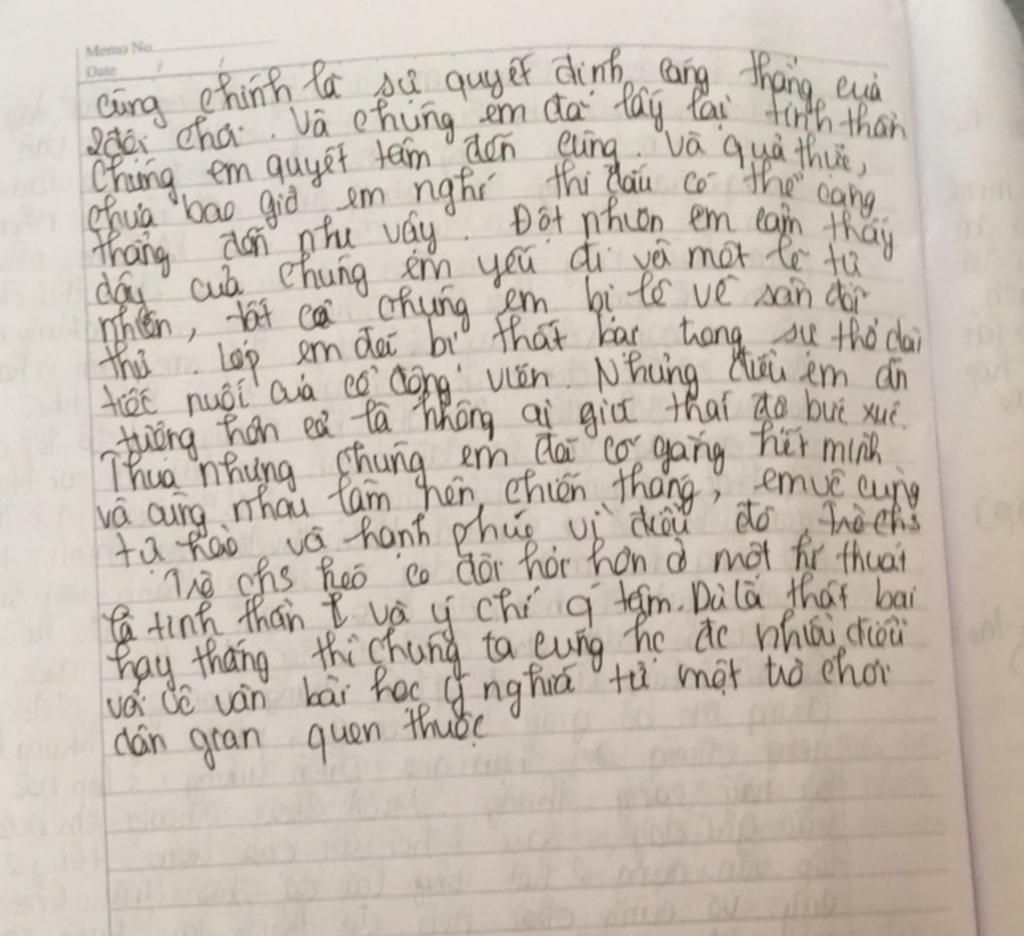 Memo No.
Date / /
cũng chính là sự quyết định căng thẳng của
2 đội chơi. Và chúng em đã lấy lại tinh thần
Chúng em quyết tâm đến cùng. Và quả thực,
chưa bao giờ em nghĩ thi đấu có thể căng
thẳng đến như vậy. Đột nhiên em cảm thấy
dây của chúng em yếu đi và một lẽ tự
nhiên, tất cả chúng em bị lê về sân đối
thủ. Lớp em đã bị thất bại trong sự thở dài
tiếc nuối của cổ động viên. Nhưng điều em ấn
tượng hơn cả là không ai giữ thái độ bức xúc.
Thua nhưng chúng em đã cố gắng hết mình
và cùng nhau làm nên chiến thắng, em vô cùng
tự hào và hạnh phúc vì điều đó
Trò chs kéo co đòi hỏi hơn ở một kĩ thuật
là tinh thần và ý chí q tâm. Dù là thất bại
hay thắng thì chúng ta cũng hc đc nhiều điều
và vô vàn bài học ý nghĩa từ một trò chơi
dân gian quen thuộc